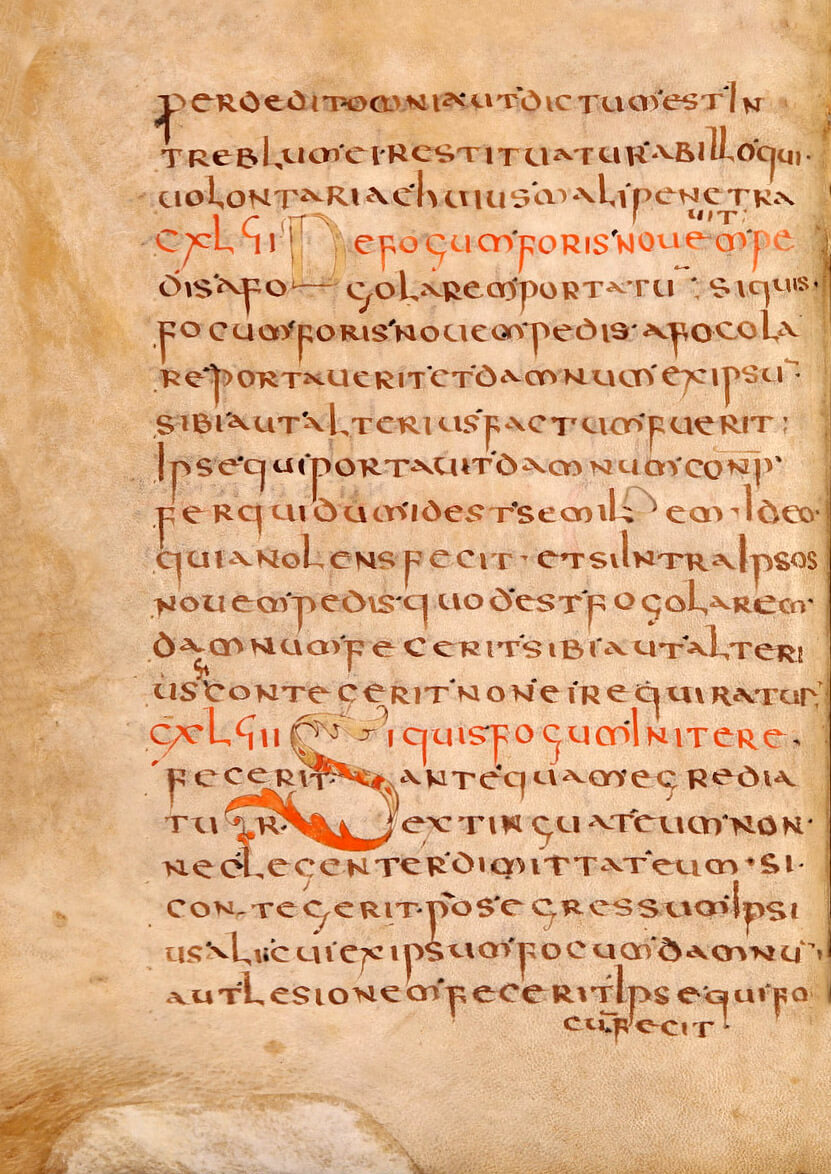 perdedit omnia ut dictum est In
treblum ei restituatur ab illo qui·
uolontariae huius mali penetra
uit:
CXLVII De fogum foris nouem pe
dis a fogolarem portatū: siquis·
focum foris nouem pedis· a focola
re portauerit et damnum ex ipsū·
sibi aut alterius factum fuerit;
Ipse qui portauit damnum conp̄
ferquidum id est semilem· Ideo·
quia nolens fecit· et si Intra Ipsos
nouem pedis· quod est fogolarem·
damnum fecerit sibi aut alteri
us si contegerit non ei requiratur
CXLVIII Si quis fogum In itere·
fecerit· antequam egredia
tur· extinguat eum non·
neclegenter dimittat eum· si·
contegerit· pos egressum Ipsi
us alicui ex ipsum focum damnū
aut lesionem fecerit Ipse qui fo
cū fecit·